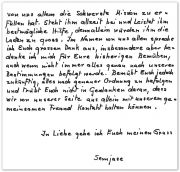 von uns allem die schwerste Mission zu er-
füllen hat. Steht ihm allzeit bei und leistet ihm
bestmögliche Hilfe, denn allein würden ihm die
Lasten zu gross. Im Namen von uns allen spreche
ich Euch grossen Dank aus, insbesondere aber be-
danke ich mich für Eure bisherigen Bemühen,
auch wenn nicht immer alles genau nach unseren
Bestimmungen befolgt werde. Bemüht Euch jedoch
zukünftig, alles nach genauer Ordnung zu befolgen
und trübt Euch nicht in Gedanken daran, dass
wir von unserer Seite aus allein mit unserem ge-
meinsamen Freund Kontakt halten können.
In Liebe gebe ich Euch meinen Gruss
Semjase